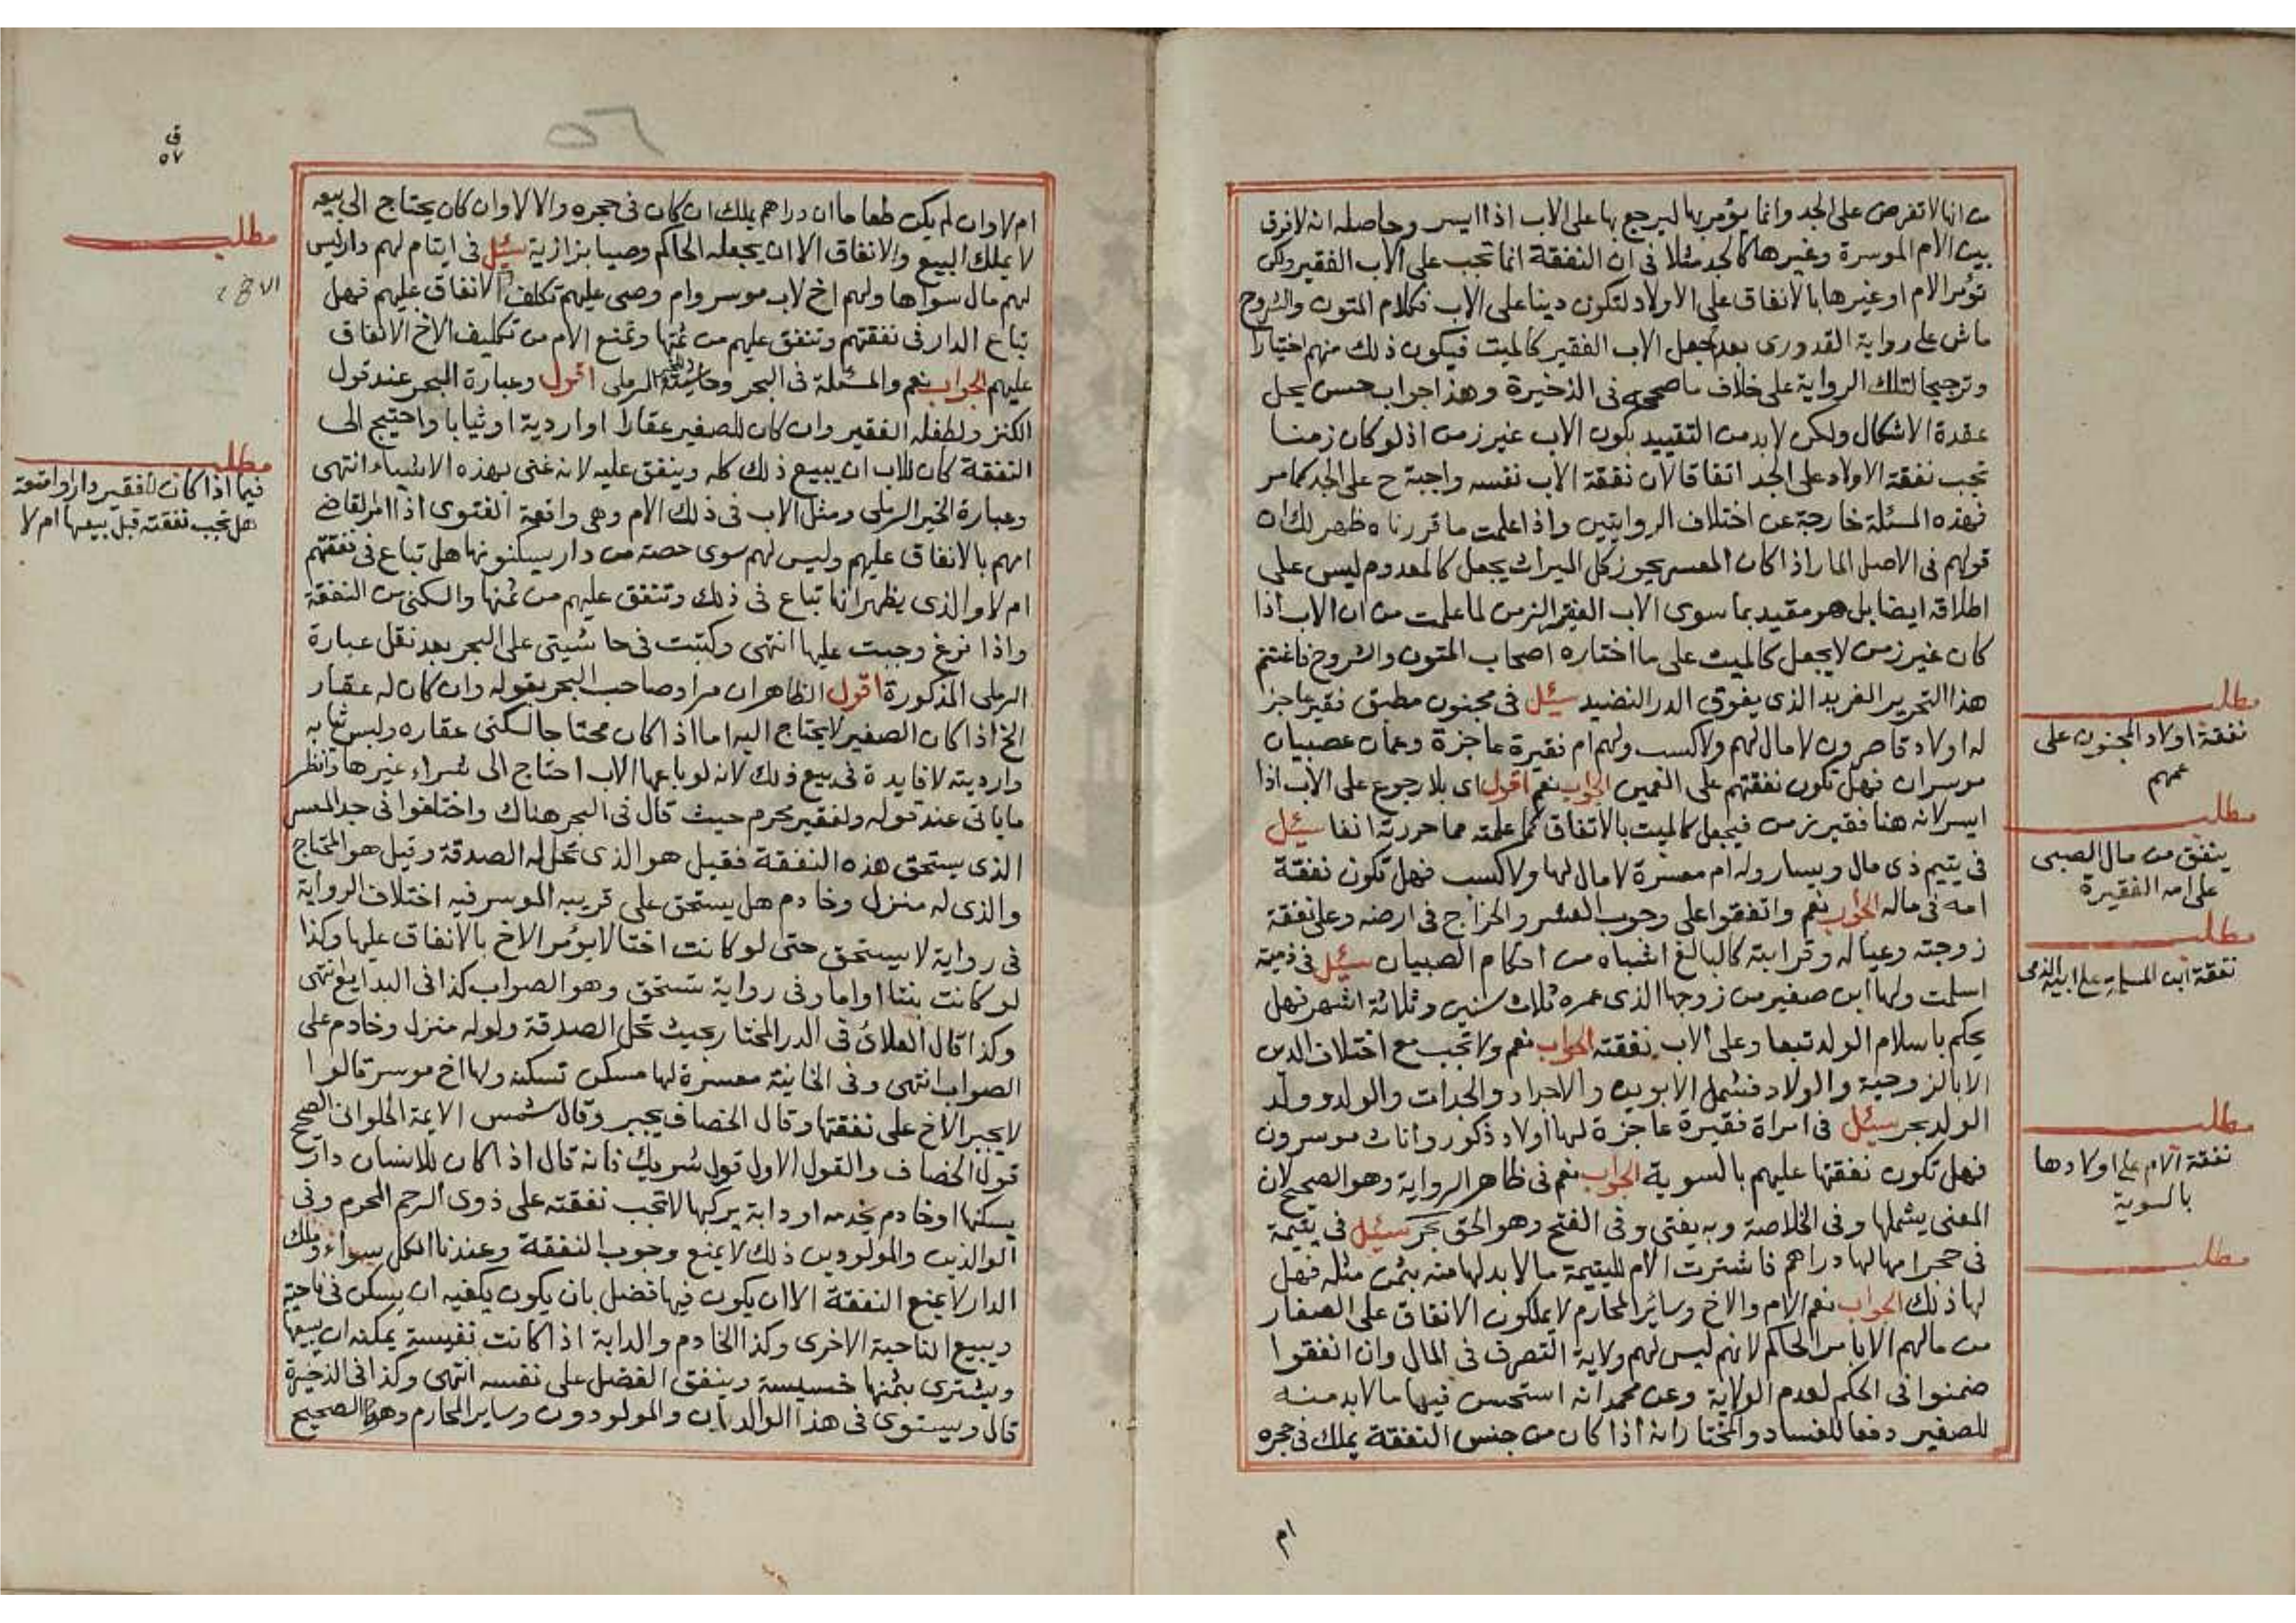 من انها لا تفرض على الجد وانما يؤمر بها ليرجع بها على الاب اذا ايسر وحاصله انه لا فرق
بين الام الموسرة وغيرها كالجد مثلا فى ان النفقة انما تجب على الاب الفقير ولكن
تؤمر الام او غيرها بالانفاق على الاولاد لتكون دينا على الاب فكلام المتون والشروح
ماش على رواية القدورى بعدم جعل الاب الفقير كالميت فيكون ذلك منهم اختيارا
وترجيحا لتلك الرواية على خلاف ما صححه فى الذخيرة وهذا جواب حسن يحل
عقدة الاشكال ولكن لا بد من التقييد بكون الاب غير زمن اذ لو كان زمنا
تجب نفقة الاولاد على الجد اتفاقا لان نفقة الاب نفسه واجبة ح على الجد كما مر
فهذه المسئلة خارجة عن اختلاف الروايتين واذا علمت ما قررناه ظهر لك ان
قولهم فى الاصل المار اذا كان المعسر يحوز كل الميراث يجعل كالمعدوم ليس على
اطلاقه ايضا بل هو مقيد بما سوى الاب الفقير الزمن لما علمت من ان الاب اذا
كان غير زمن لا يجعل كالميت على ما اختاره اصحاب المتون والشروح فاغتنم
هذا التحرير الفريد الذى يفوق الدر النضيد سئل فى مجنون مطبق فقير عاجز
له اولاد قاصرون لا مال لهم ولا كسب ولهم ام فقيرة عاجزة وعمان عصبيان
موسران فهل تكون نفقتهم على العمين الجواب نعم اقول اى بلا رجوع على الاب اذا
ايسر لانه هنا فقير زمن فيجعل كالميت بالاتفاق كما علمته مما حررته انفا سئل
فى يتيم ذى مال ويسار وله ام معسرة لا مال لها ولا كسب فهل تكون نفقة
امه فى ماله الجواب نعم واتفقوا على وجوب العشر والخراج فى ارضه وعلى نفقة
زوجته وعياله وقرابته كالبالغ اشباه من احكام الصبيان سئل فى ذمية
اسلمت ولها ابن صغير من زوجها الذى عمره ثلاث سنين وثلاثة اشهر فهل
يحكم باسلام الولد تبعا وعلى الاب نفقته الجواب نعم ولا تجب مع اختلاف الدين
الا بالزوجية والولاد فشمل الابوين والاجداد والجدات والولد وولد
الولد بحر سئل فى امراة فقيرة عاجزة لها اولاد ذكور واناث موسرون
فهل تكون نفقتها عليهم بالسوية الجواب نعم فى ظاهر الرواية وهو الصحيح لان
المعنى يشملها وفى الخلاصة وبه يفتى وفى الفتح وهو الحق بحر سئل فى يتيمة
فى حجر امها لها دراهم فاشترت الام لليتيمة ما لا بد لها منه بثمن مثله فهل
لها ذلك الجواب نعم الام والاخ وسائر المحارم لا يملكون الانفاق على الصغار
من مالهم الا بامر الحاكم لانهم ليس لهم ولاية التصرف فى المال وان انفقوا
ضمنوا فى الحكم لعدم الولاية وعن محمد انه استحسن فيها ما لا بد منه
للصغير دفعا للفساد والمختار انه اذا كان من جنس النفقة يملك فى حجره
ام
مطلب
نفقة اولاد المجنون على
عمهم
مطلب
ينفق من مال الصبى
على امه الفقيرة
مطلب
نفقة ابن المسلمة على ابيه الذمى
مطلب
نفقة الام على اولادها
بالسوية
مطلب
٥٧
ام لا وان لم يكن طعاما ان دراهم يملك ان كان فى حجره والا لا وان كان يحتاج الى بيعه
لا يملك البيع والانفاق الا ان يجعله الحاكم وصيا بزازية سئل فى ايتام لهم دار ليس
لهم مال سواها ولهم اخ لاب موسر وام وصى عليهم تكلف الانفاق عليهم فهل
تباع الدار فى نفقتهم وتنفق عليهم من ثمنها وتمنع الام من تكليف الاخ الانفاق
عليهم الجواب نعم والمسئلة فى البحر وحاشيته للخير الرملى اقول وعبارة البحر عند قول
الكنز ولطفله الفقير وان كان للصغير عقارا او اردية او ثيابا واحتيج الى
النفقة كان للاب ان يبيع ذلك كله وينفق عليه لانه غنى بهذه الاشياء انتهى
وعبارة الخير الرملى ومثل الاب فى ذلك الام وهى واقعة الفتوى اذا امر القاضى
امهم بالانفاق عليهم وليس لهم سوى حصة من دار يسكنونها هل تباع فى نفقتهم
ام لا والذى يظهر انها تباع فى ذلك وتنفق عليهم من ثمنها والسكنى من النفقة
واذا فرغ وجبت عليها انتهى وكتبت فى حاشيتى على البحر بعد نقل عبارة
الرملى المذكورة اقول الظاهر ان مراد صاحب البحر بقوله وان كان له عقار
الخ اذا كان الصغير لا يحتاج اليه اما اذا كان محتاجا لسكنى عقاره ولبس ثيابه
وارديته لا فايدة فى بيع ذلك لانه لو باعها الاب احتاج الى شراء غيرها وانظر
ما ياتى عند قوله ولفقير محرم حيث قال فى البحر هناك واختلفوا فى حد المعسر
الذى يستحق هذه النفقة فقيل هو الذى تحل له الصدقة وقيل هو المحتاج
والذى له منزل وخادم هل يستحق على قريبه الموسر فيه اختلاف الرواية
فى رواية لا يستحق حتى لو كانت اختا لا يؤمر الاخ بالانفاق عليها وكذا
لو كانت بنتا او اما وفى رواية تستحق وهو الصواب كذا فى البدايع انتهى
وكذا قال العلائى فى الدر المختار بحيث تحل الصدقة ولو له منزل وخادم على
الصواب انتهى وفى الخانية معسرة لها مسكن تسكنه ولها اخ موسر قالوا
لا يجبر الاخ على نفقتها وقال الخصاف يجبر وقال شمس الايمة الحلوانى الصحيح
قول الخصاف والقول الاول قول شريك فانه قال اذا كان للانسان دار
يسكنها او خادم يخدمه او دابة يركبها لا تجب نفقته على ذوى الرحم المحرم وفى
الوالدين والمولودين ذلك لا يمنع وجوب النفقة وعندنا الكل سواء وملك
الدار لا يمنع النفقة الا ان يكون فيها فضل بان يكون يكفيه ان يسكن فى ناحية
ويبيع الناحية الاخرى وكذا الخادم والدابة اذا كانت نفيسة يمكنه ان يبيعها
ويشترى بثمنها خسيسة وينفق الفضل على نفسه انتهى وكذا فى الذخيرة
قال ويستوى فى هذا الوالدان والمولودون وساير المحارم وهو الصحيح
مطلب
مطلب
فيما اذا كان للفقير دار او امتعة
هل تجب نفقته قبل بيعها ام لا